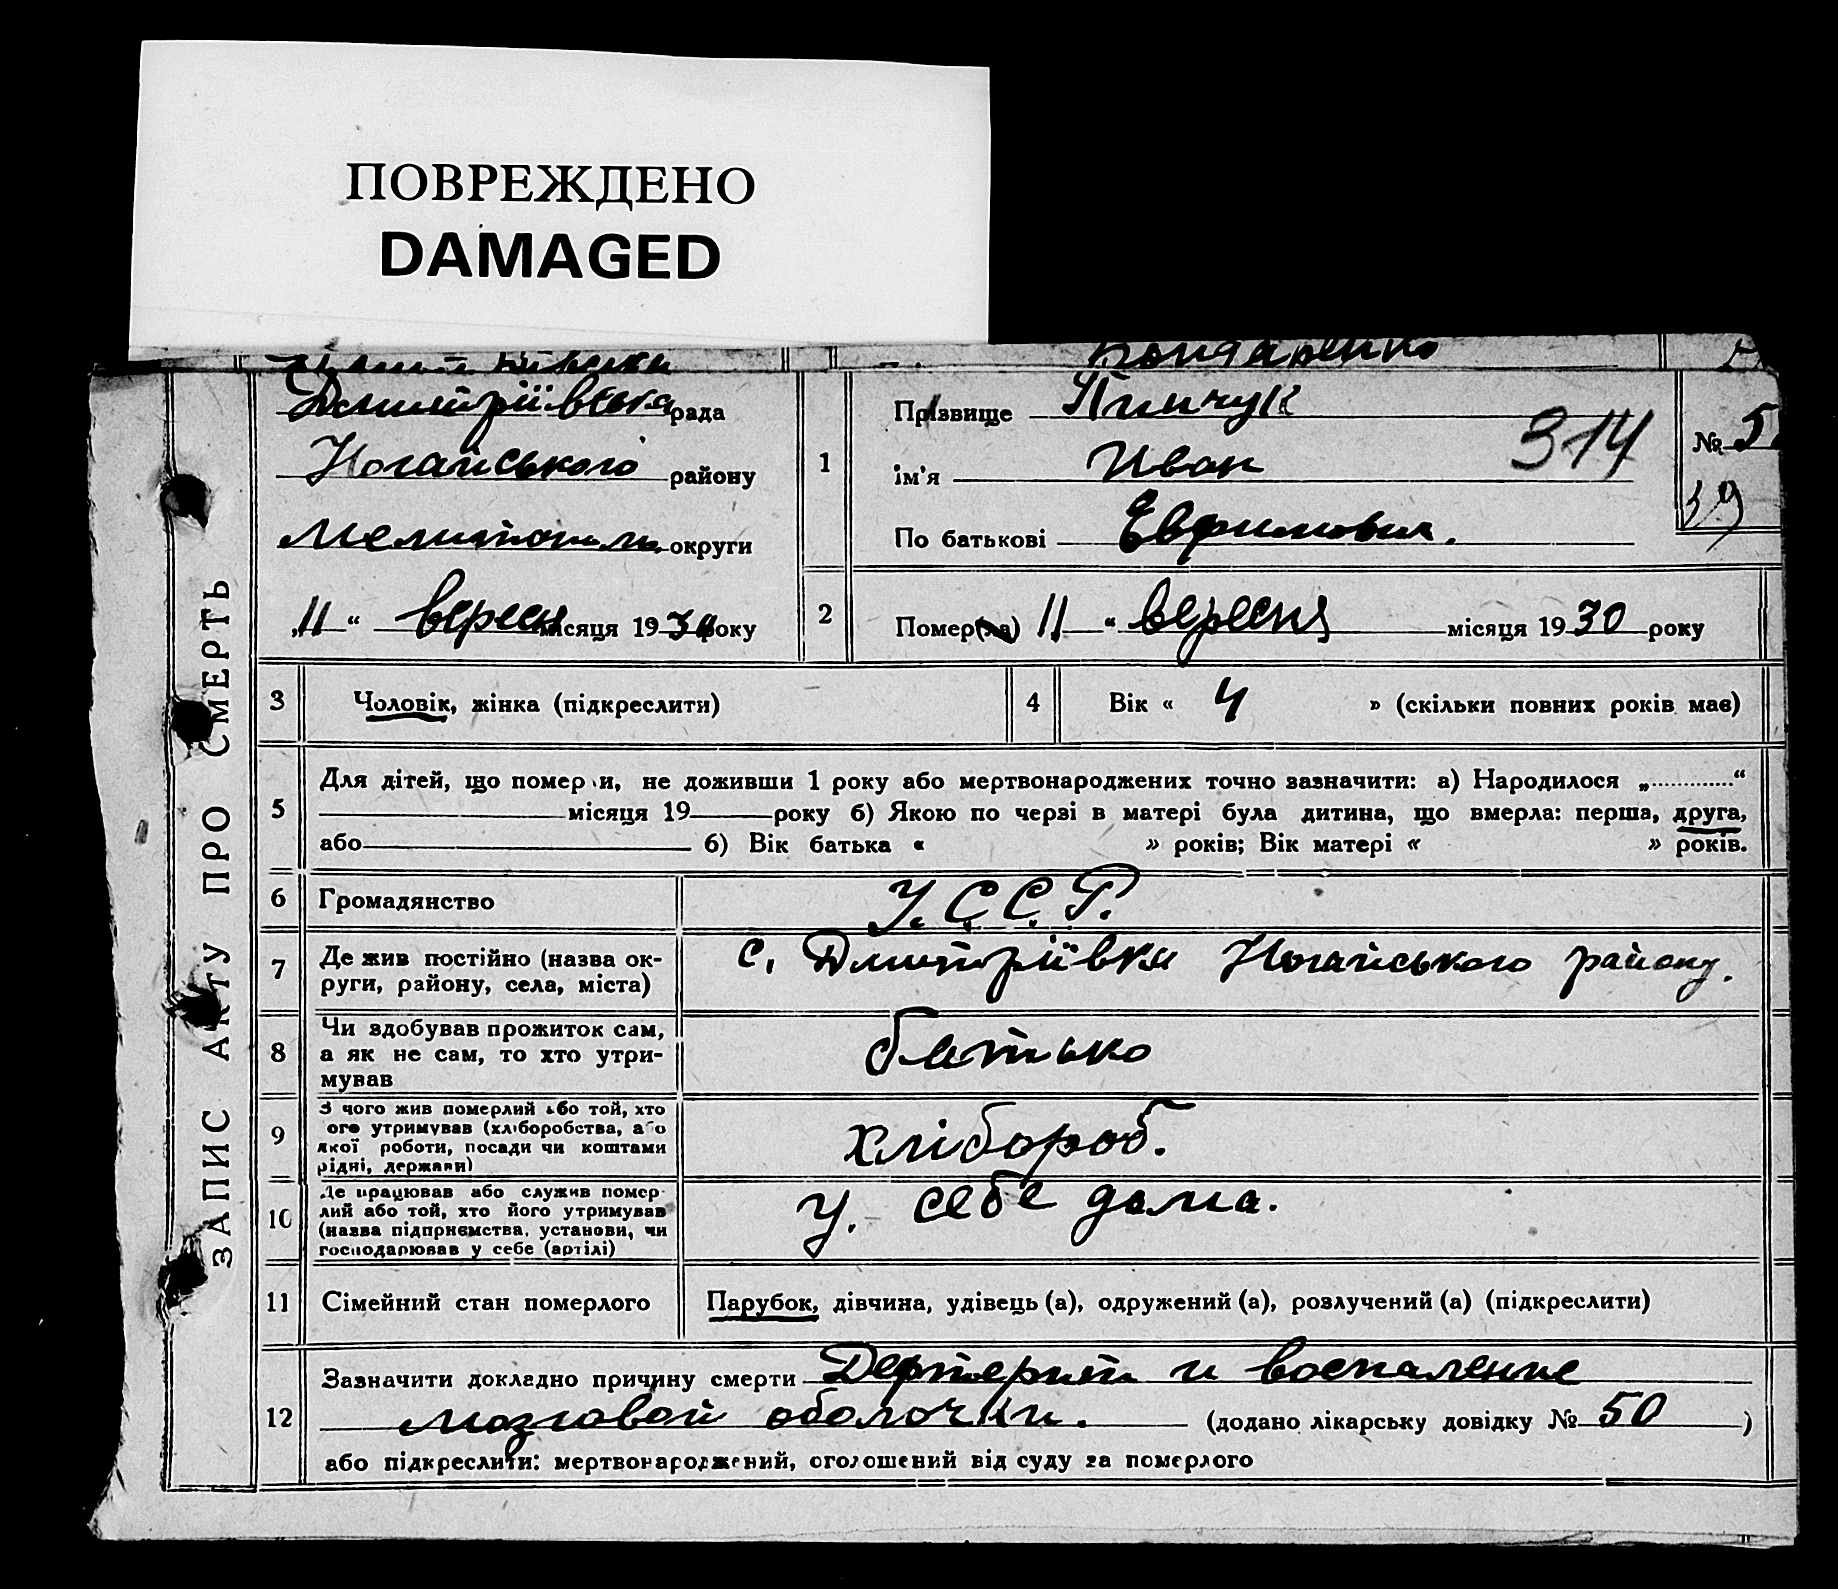 ПОВРЕЖДЕНО
DAMAGED
Бондаренко
ЗАПИС АКТУ ПРО СМЕРТЬ
Дмитріївська рада
Ногайського району
округи
„11“ вересня місяця 1930 року
1
Прізвище Пинчук
ім'я Иван
314
По батькові Евфимович.
№ 5
2
Помер(ла) 11 “ вересня місяця 1930 року
3 Чоловік, жінка (підкреслити)
4 Вік « 4 » (скільки повних років має)
5
Для дітей, що померли, не доживши 1 року або мертвонароджених точно зазначити: а) Народилося „ “
місяця 19 року б) Якою по черзі в матері була дитина, що вмерла: перша, друга,
або б) Вік батька « » років; Вік матері « » років.
6 Громадянство У.С.С.Р.
7
Де жив постійно (назва ок-
руги, району, села, міста)
с. Дмитріївка Ногайського району.
8
Чи здобував прожиток сам,
а як не сам, то хто утри-
мував
батько
9
З чого жив померлий або той, хто
ого утримував (хліборобства, або
якої роботи, посади чи коштами
рідні, держави)
хлібороб.
10
Де працював або служив помер-
лий або той, хто його утримував
(назва підприємства, установи, чи
господарював у себе (артілі)
у. себе дома.
11 Сімейний стан померлого Парубок, дівчина, удівець (а), одружений (а), розлучений (а) (підкреслити)
12
Зазначити докладно причину смерти Дефтерит и воспаление
мозговой оболочки. (додано лікарську довідку № 50 )
або підкреслити: мертвонароджений, оголошений від суду за померлого